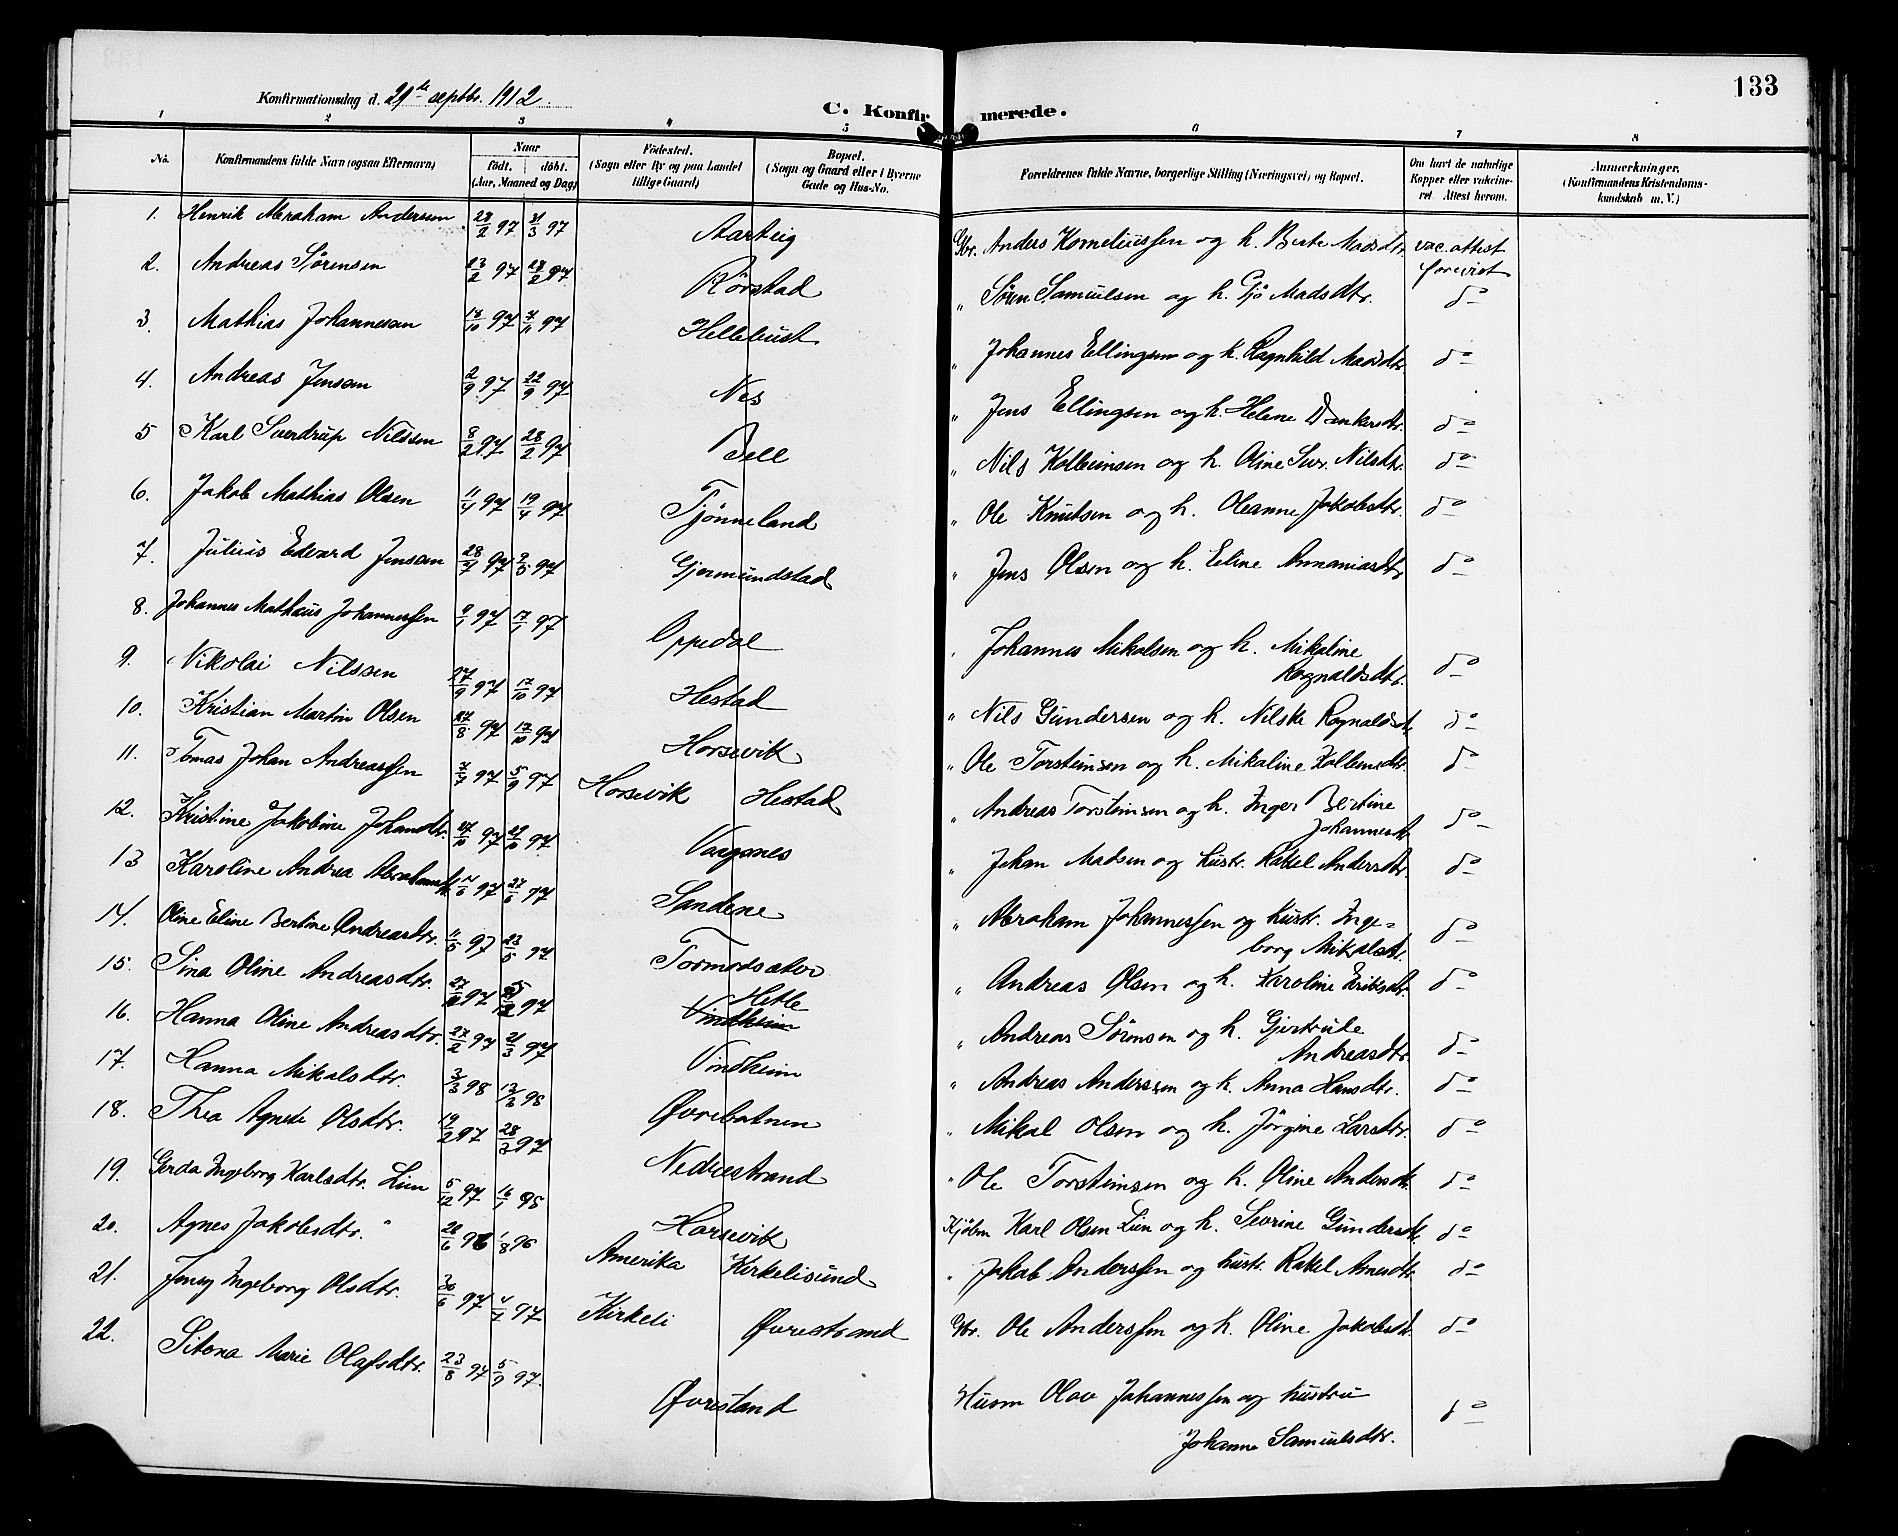 133
Konfirmationsdag d. 29de septbr. 1912.
C. Konfirmerede.
1 2 3 4 5 6 7 8
No. Konfirmandens fulde Navn (ogsaa Efternavn) Naar födt. döbt. (Aar, Maaned og Dag) Födested. (Sogn eller By og paa Landet tillige Gaard) Bopæl. (Sogn og Gaard eller i Byerne Gade og Hus-No. Forældrenes fulde Navne, borgerlige Stilling (Næringsvei) og Bopæl. Om havt de naturlige Kopper eller vaccineret. Attest herom. Anmerkninger. (Konfirmandens Kristendomskundskab m. V.)
1. Henrik Abraham Andersen 28/2 97 21/3 97 Aarteig Gbr. Anders Korneliussen og h. Berte Madsdtr. vac. attest forevist
2. Andreas Sørensen 23/2 97 28/2 97 Rørstad " Søren Samuelsen og h. Gjø Madsdtr. do
3. Mathias Johannesen 17/10 97 7/11 97 Hellebust " Johannes Ellingsen og h. Ragnhild Madsdtr. do
4. Andreas Jensen 2/9 97 22/9 97 Nes " Jens Ellingsen og h. Helene Dankersdtr. do
5 Karl Sverdrup Nilssen 8/2 97 28/2 97 Bell " Nils Kolbeinsen og h. Oline Sur. Nilsdtr. do
6. Jakob Mathias Olsen 11/4 97 19/4 97 Tjønneland " Ole Knutsen og h. Oleanne Jakobsdtr. do
7. Julius Edvard Jensen 28/7 97 97 Gjermundstad " Jens Olsen og h. Eline Annaniasdtr do
8. Johannes Matheus Johannessen 9/1 97 17/1 97 Oppedal " Johannes Mikalsen og h. Mikaline Ragnaldsdtr. do
9. Nikolai Nilssen 27/9 97 17/10 97 Hestad " Nils Gundersen og h. Nilske Ragnaldsdt. do
10. Kristian Martin Olsen 27/8 97 17/10 97 Horsevik " Ole Torsteinsen og h. Mikaline Kolbensdtr. do
11. Tomas Johan Andreassen 7/7 97 5/9 97 Horsevik Hestad " Andreas Torsteinsen og h. Inger Bertine Johannesdt. do
12. Kristine Jakobine Johansdtr. 27/10 97 29/10 97 Vaagsnes " Johan Madsen og hustr. Rakel Andersdtr. do
13 Karoline Andrea Abrahamsdt. 97 27/6 97 Sandene " Abraham Johannessen og hustr. Ingeborg Mikalsdt. do
14. Oline Eline Bertine Andreasdtr. 11/5 97 23/5 97 Tormodsaker " Andreas Olsen og h. Karoline Eriksdt. do
15. Sina Oline Andreasdtr. 97 97 Hetle Vindheim " Andreas Sørensen og h. Gjertrude Andreasdtr. do
16. Hanna Oline Andreasdtr. 27/2 97 21/3 97 Vindheim " Andreas Anderssen og h. Anna Hansdtr. do
17. Hanna Mikalsdtr. 3/3 98 13/3 98 Øvrebotnen " Mikal Olsen og h. Jörgine Larsdtr. do
18. Thea Agnete Olsdtr. 19/2 97 28/3 97 Nedrestrand " Ole Torsteinsen og h. Oline Andersdt. do
19. Gerda Ingeborg Karlsdtr. Lien 5/12 97 16/1 98 Horsevik Kjøbm Karl Olsen Lien og h. Severine Gundersdt. do
20. Agnes Jakobsdtr. " 20/6 96 1/8 96 Amerika Kirkelisund " Jakob Anderssen og hustr. Rakel Arnesdtr. do
21. Jenny Ingeborg Olsdtr. 30/6 97 4/7 97 Kirkeli Øvrestrand Gbr. Ole Anderssen og h. Oline Jakobsdt. do
22. Sikona Marie Olafsdtr. 23/8 97 5/9 97. Øvrestand Husm Olav Johannessen og hustru Johanne Samuelsdtr. do